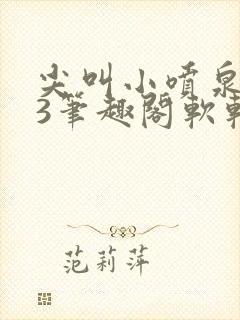 尖叫小喷泉
3筆趣閣軟
范莉萍